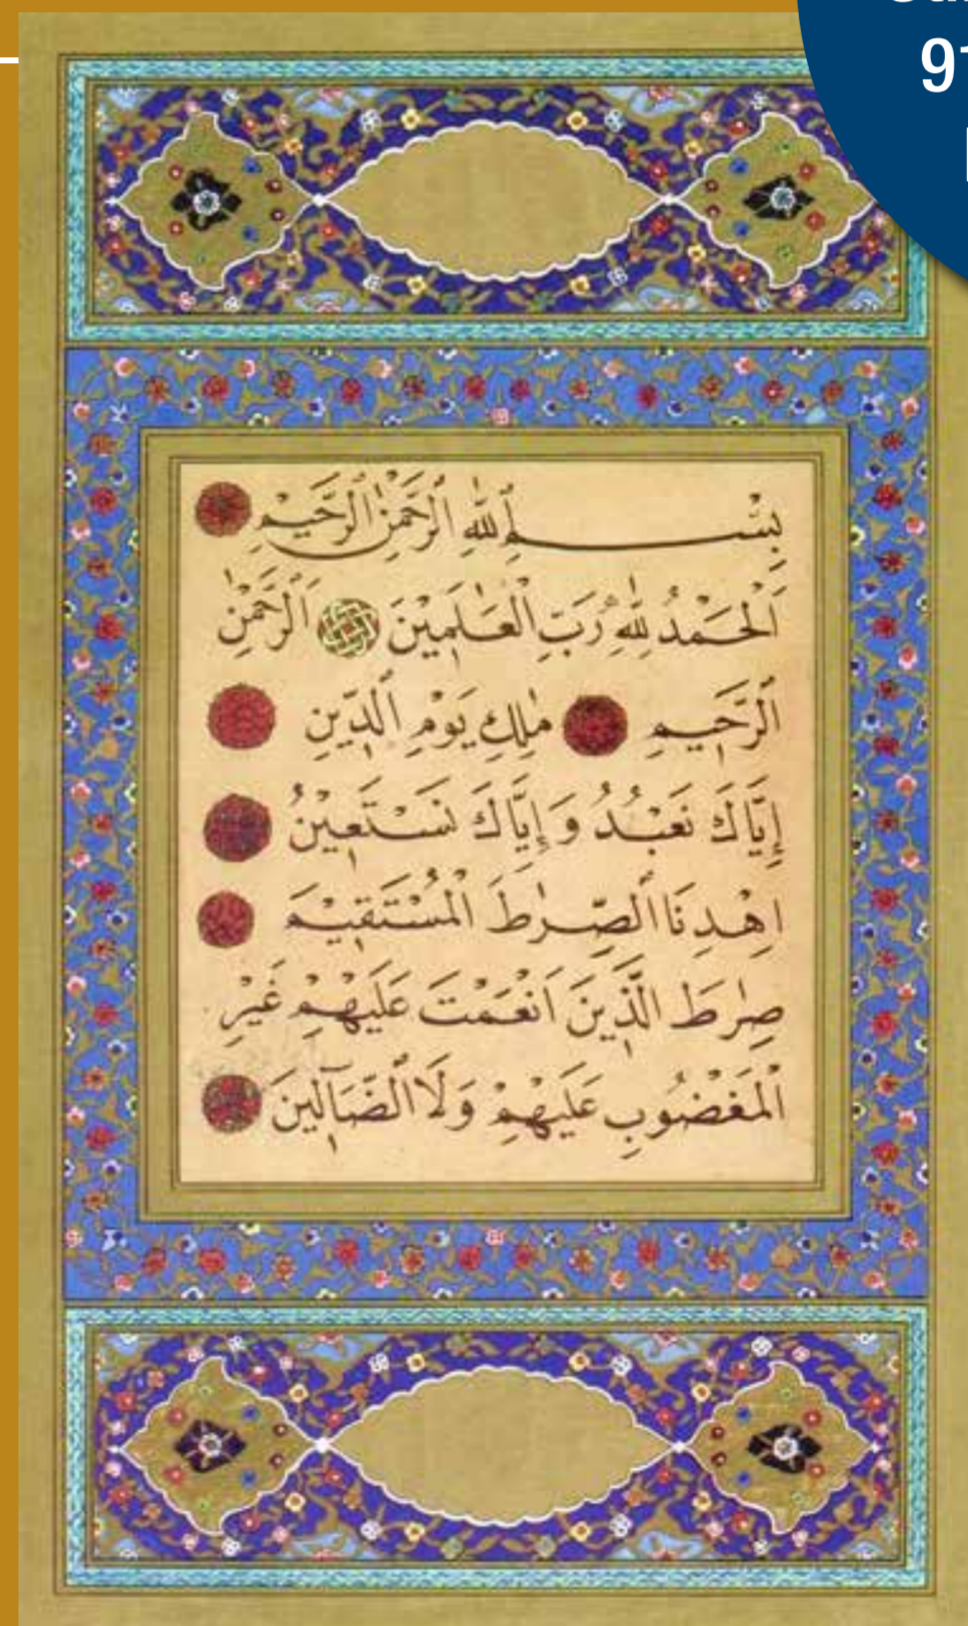 91
بِسْمِ ٱللّٰهِ ٱلرَّحْمٰنِ ٱلرَّحِيمِ
اَلْحَمْدُ لِلّٰهِ رَبِّ الْعَالَمِينَ اَلرَّحْمٰنِ
ٱلرَّحِيمِ مٰلِكِ يَوْمِ ٱلدِّينِ
إِيَّاكَ نَعْبُدُ وَإِيَّاكَ نَسْتَعِينُ
اِهْدِنَا ٱلصِّرٰطَ الْمُسْتَقِيمَ
صِرٰطَ الَّذِينَ اَنْعَمْتَ عَلَيْهِمْ غَيْرِ
الْمَغْضُوبِ عَلَيْهِمْ وَلَا ٱلضَّآلِّينَ